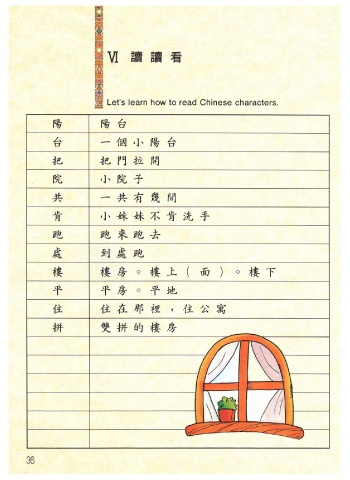 VI 讀讀看
Let's learn how to read Chinese characters.
陽 陽台
台 一個小陽台
把 把門拉開
院 小院子
共 一共有幾間
肯 小妹妹不肯洗手
跑 跑來跑去
處 到處跑
樓 樓房。樓上(面)。樓下
平 平房。平地
住 住在那裡,住公寓
拼 雙拼的樓房
36